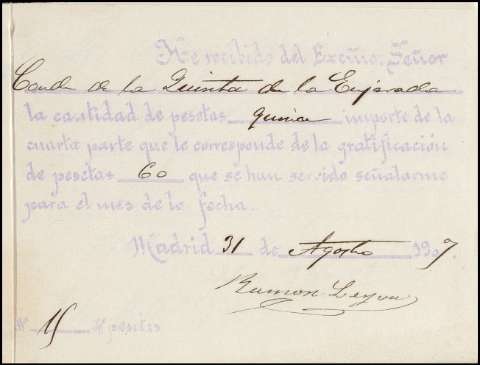 He recibido del Excmo. Señor
Conde de la Quinta de la Enjarada
la cantidad de pesetas quince importe de la
cuarta parte que le corresponde de la gratificación
de pesetas 60 que se han servido señalarme
para el mes de la fecha.
Madrid 31 de Agosto 1907.
Ramon
15 pesetas